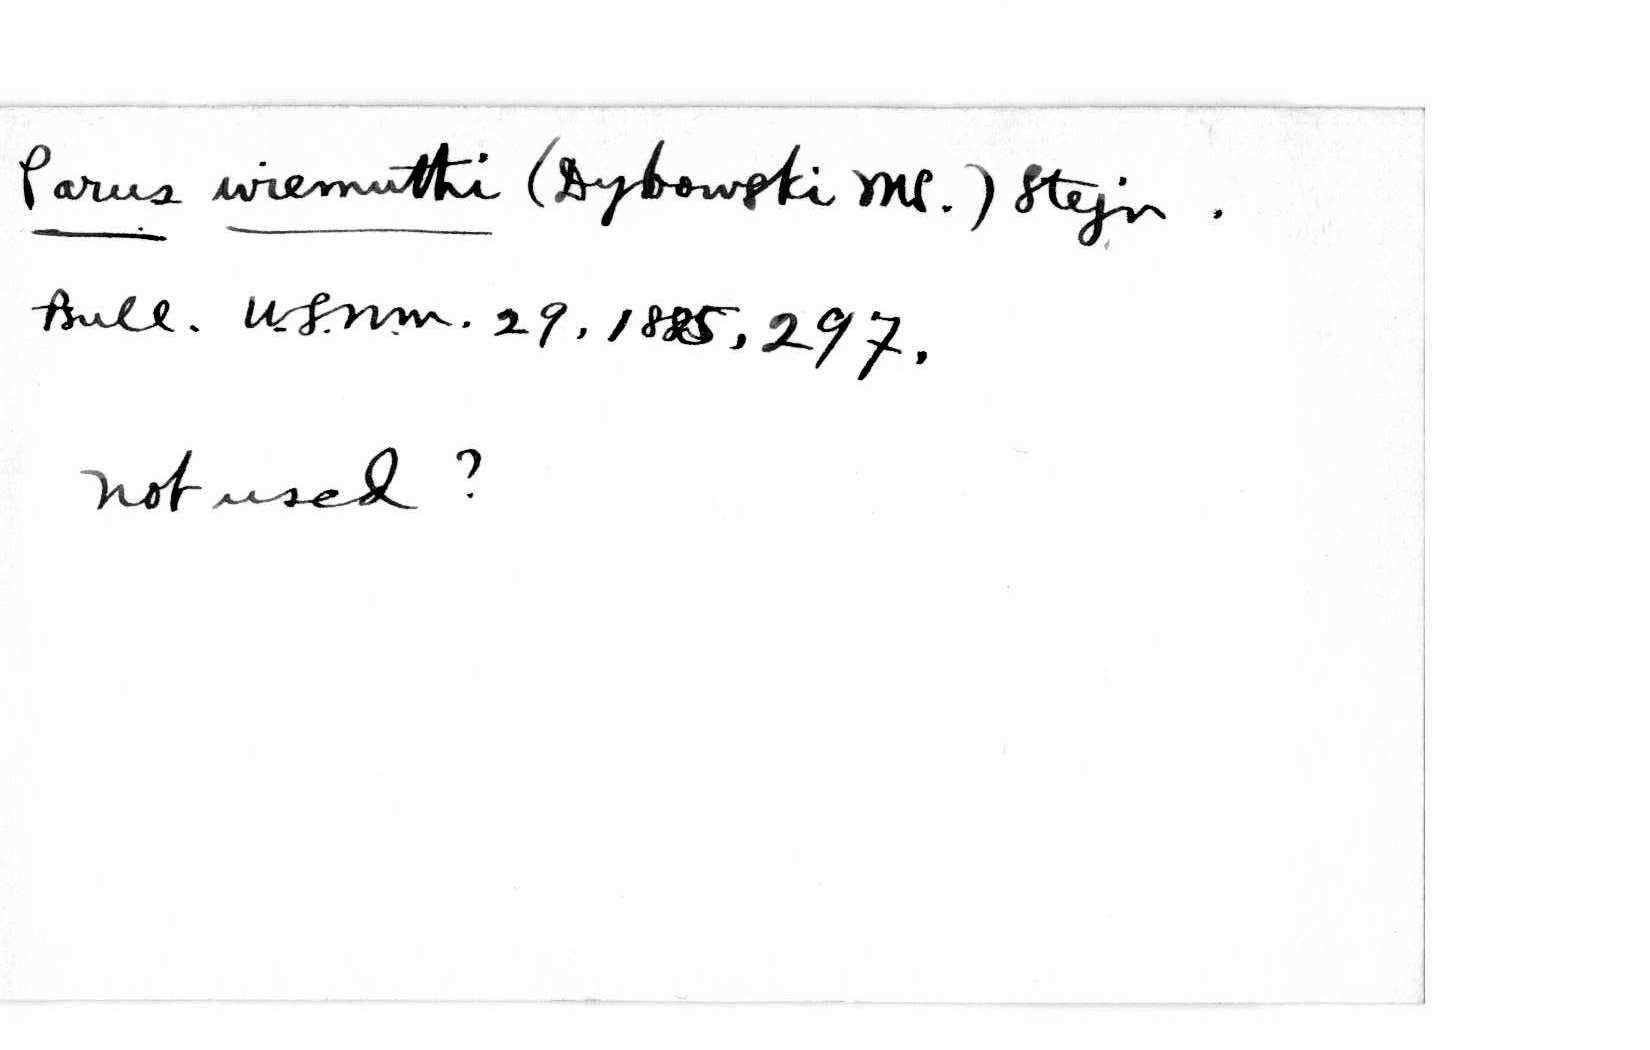 Parus wiemuthi (Dybowski MS.) Stejn.
Bull. U.S.N.M. 29, 1885, 297.
not used?